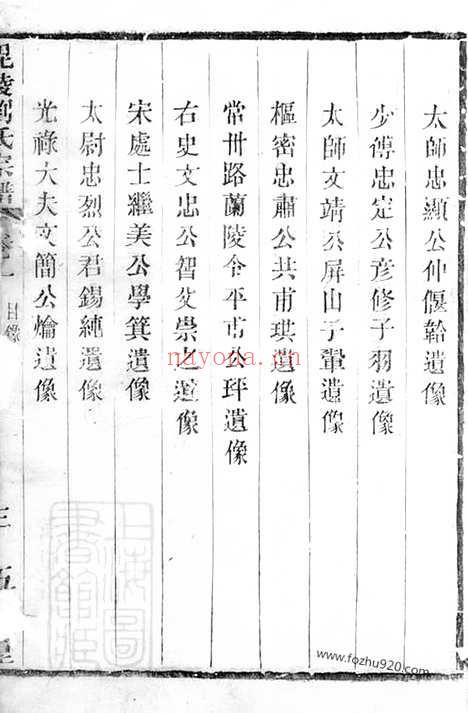 太師忠顯公仲偃韐遺像
少傅忠定公彦修子羽遺像
太師文靖公屏山子翬遺像
樞密忠肅公共甫珙遺像
常州路蘭陵令平甫公玶遺像
右史文忠公智父崇之遺像
宋處士繼美公學箕遺像
太尉忠烈公君錫純遺像
光祿大夫文簡公爚遺像
毘陵劉氏宗譜
卷一 目錄
三 五
nayona.cn
www.fozhu920.com